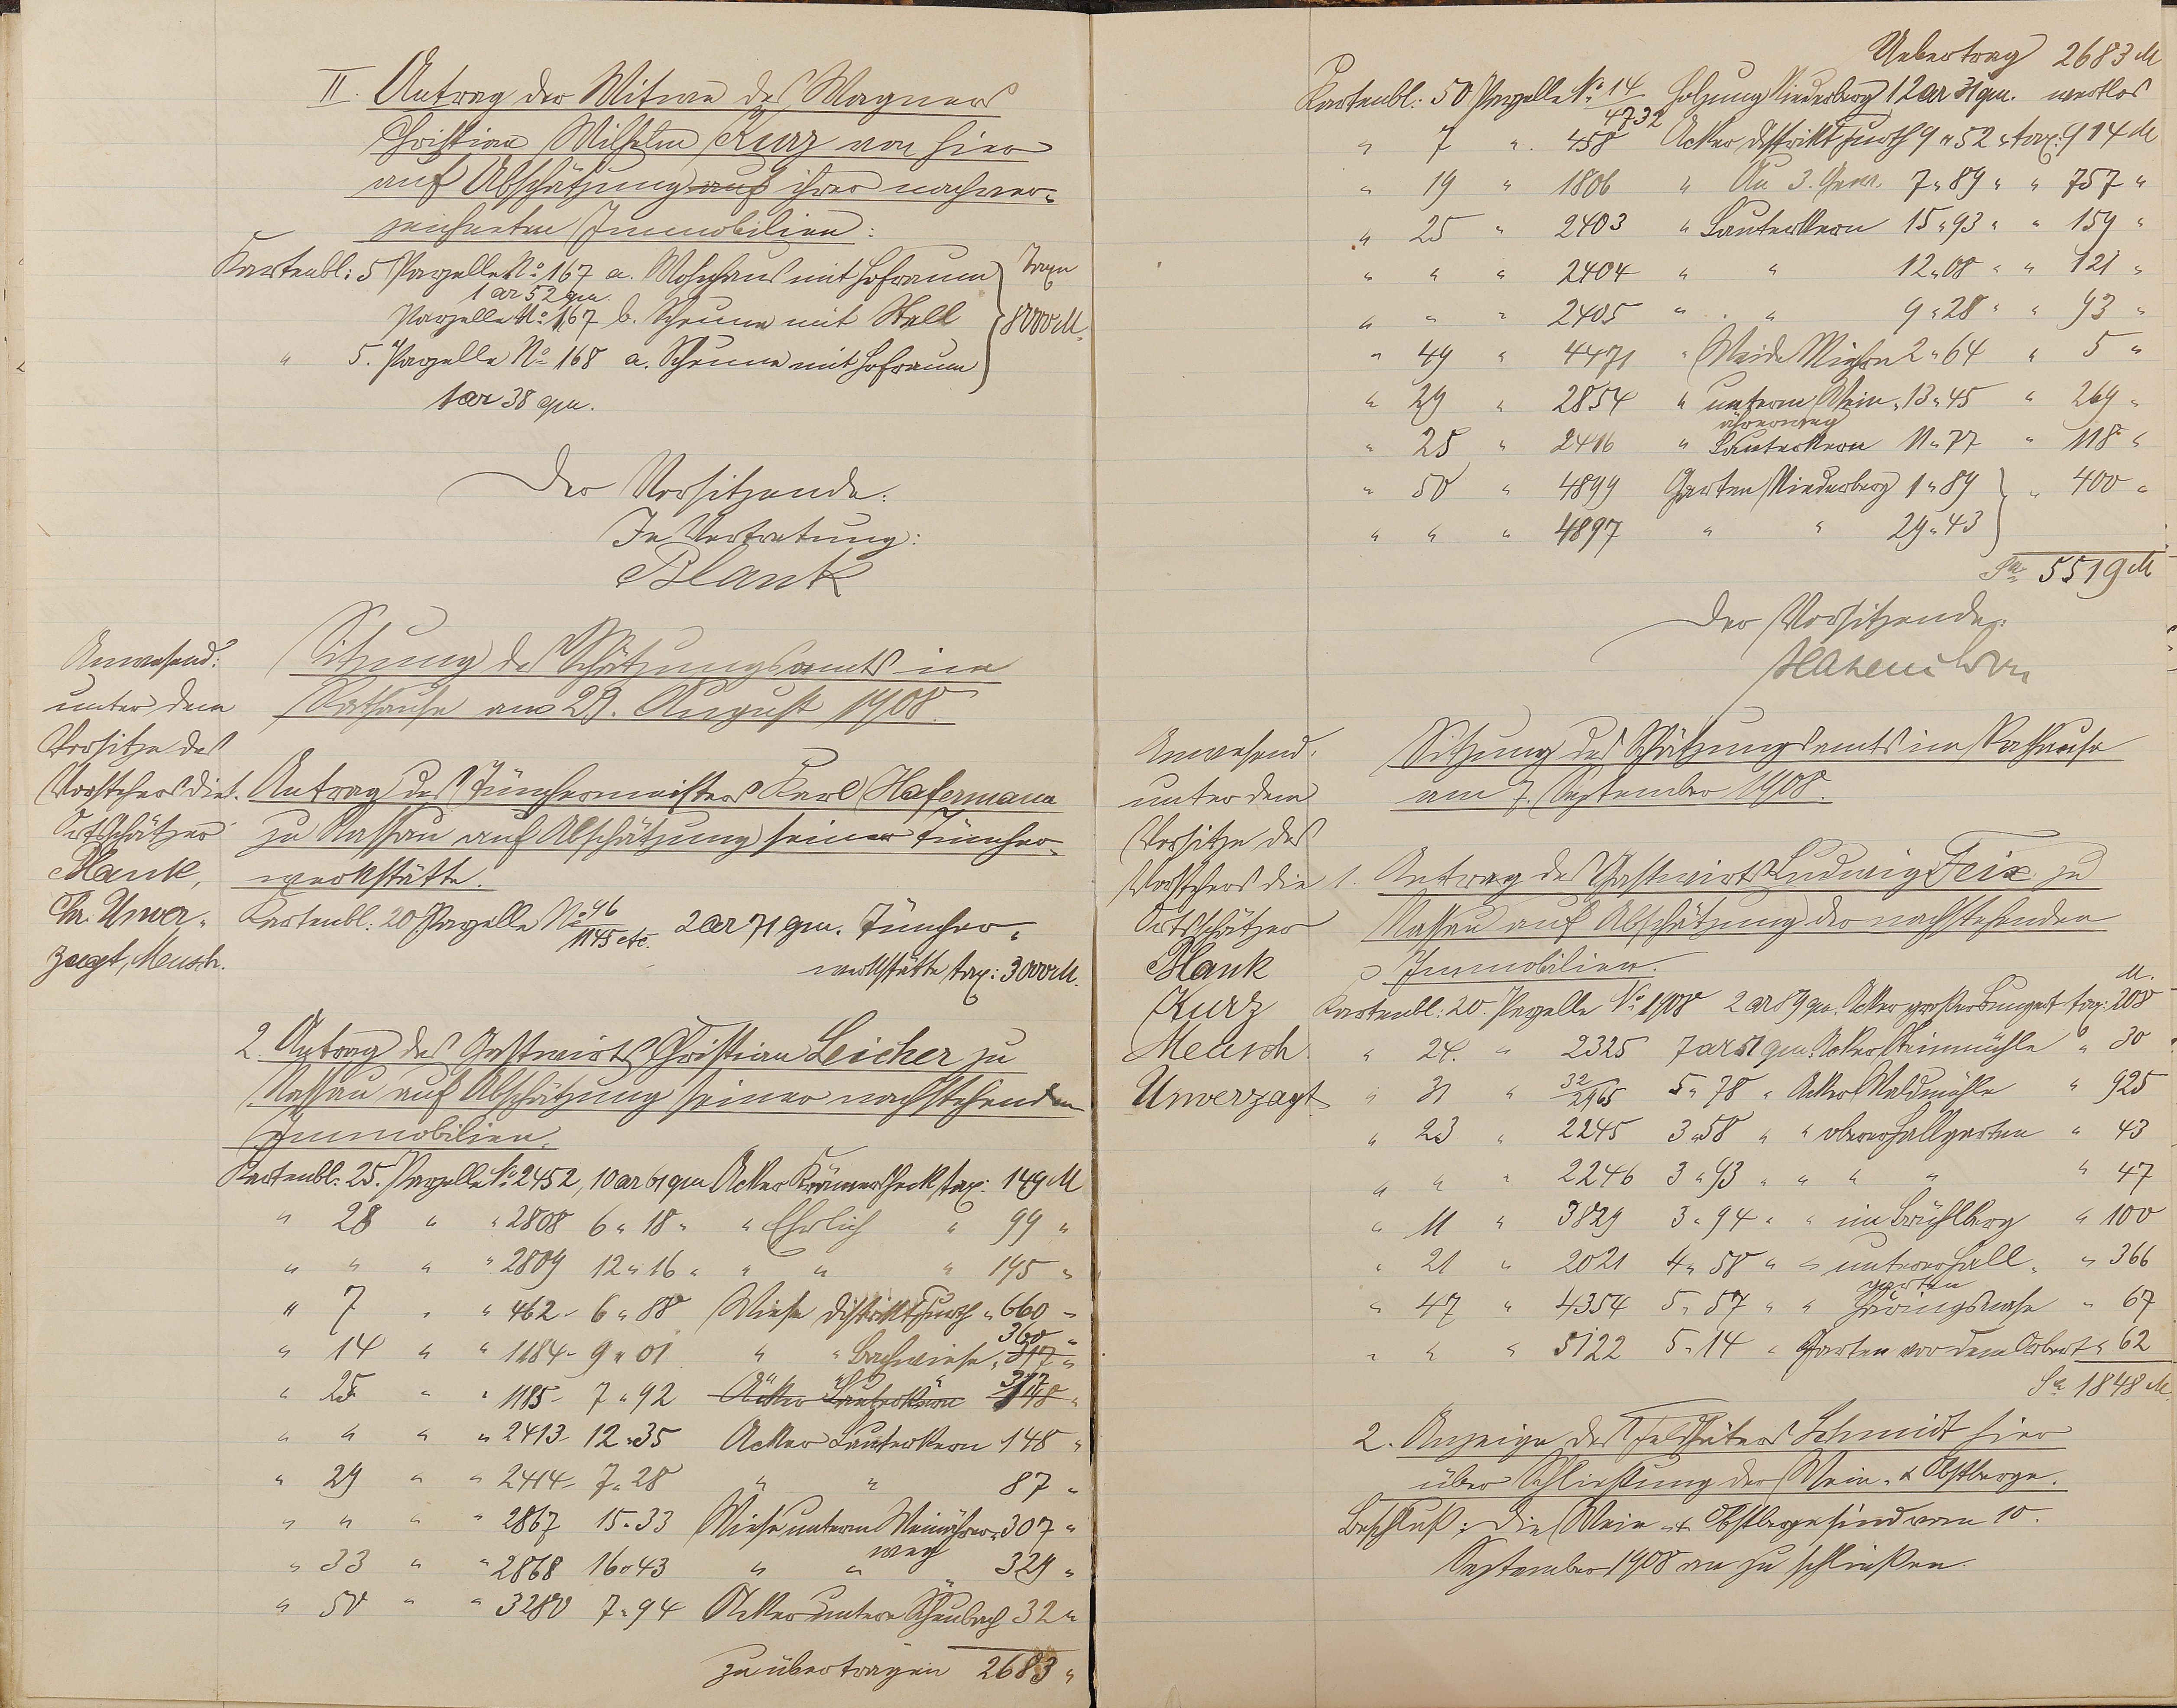 II. Antrag der Witwe des Wagners
Christian Wilhelm Kurz von hier
auf Abschätzung auf ihrer nachver-
zeichneten Immobilien:
Kartenbl: 5 Parzelle No 167 a. Wohnhaus mit Hofraum Taxe
1 ar 52 qm.
Parzelle No 167 b. Scheune mit Stall 8000 M.
" 5. Parzelle No 168 a. Scheune mit Hofraum
1 ar 38 qm.
Der Vorsitzende:
In Vertretung:
Blank
Anwesend:
unter dem
Vorsitze des
Vorstehers die
Ortsschätzer
Blank,
Chr. Unver-
zagt, Meusch.
Sitzung des Schätzungsamts im
Rathause am 29. August 1908.
1. Antrag des Tünchermeisters Karl Hafermann
zu Nassau auf Abschätzung seiner Tüncher-
werkstätte.
Kartenbl: 20 Parzelle No 96/1145 etc. 2 ar 71 qm. Tüncher-
werkstätte tax: 3000 M.
2. Antrag des Gastwirts Christian Leicher zu
Nassau auf Abschätzung seiner nachstehenden
Immobilien.
Kartenbl: 25. Parzelle No 2452, 10 ar 61 qm Acker Krämersheck tax: 149 M
" 28 " " 2808 6 " 18 " " Ehrlich " 99 "
" " " " 2809 12 " 16 " " " " 195 "
" 7 " " 462 - 6 " 88 Wiese Distrikt Furth " 660 "
" 14 " " 1184 - 9 " 01 " " Bachwiese " 317 " 360 "
" 25 " " 1185 - 7 " 92 " " " Acker Lauterkern 148 " 317
" " " " 2413 - 12 " 35 Acker Lauterkern 148 "
" 29 " " 2414 - 7 " 28 " " 87 "
" " " " 2867 15 " 33 Wiese unterm Weinährer- 307 "
weg
" 33 " " 2868 16 " 43 " " 329 "
" 50 " " 3280 7 " 94 Acker untere Scheubach 32 "
zu übertragen 2683 "
Uebertrag 2683 M
Kartenbl: 50 Parzelle No 14/4732 Holzung Niederberg 12 ar 31 qm. wertlos
" 7 " 458 Acker Distrikt Furth 9 " 52 " tax: 914 M
" 19 " 1806 " Au 3. Gew. 7 " 89 " " 757 "
" 25 " 2403 " Lauterkern 15 " 93 " " 159 "
" " " 2404 " " 12 " 08 " " 121 "
" " " 2405 " " 9 " 28 " " 93 "
" 49 " 4471 " Weide Mühen 2 " 64 " 5 "
" 29 " 2854 " unterm Wein- 13 " 45 " 269 "
ährerweg
" 25 " 2416 " Lauterkern 11 " 77 " 118 "
" 50 " 4899 Garten Niederberg 1 " 89 " 400 "
" " " 4897 " " 29 " 43
Sa 5519 M
Der Vorsitzende:
Anwesend:
unter dem
Vorsitze des
Vorstehers die
Ortsschätzer
Blank
Kurz
Meusch
Unverzagt
Sitzung des Schätzungsamts im Rathause
am 7. September 1908.
1. Antrag des Gastwirts Ludwig Feix zu
Nassau auf Abschätzung der nachstehenden
Immobilien.
M.
Kartenbl: 20. Parzelle No 1908 2 ar 89 qm. Acker großer Bungert tax: 208
" 24. " 2325 7 ar 51 qm. Acker Steinmühle " 30
" 31 " 32/2965 5 " 78 " Acker Waldmühle " 925
" 23 " 2245 3 " 58 " " oberer Hallgarten " 43
" " " 2246 3 " 93 " " " " " 47
" 11 " 3829 3 " 94 " " im Brühlberg " 100
" 21 " 2021 4 " 58 " " unterer Hall- " 366
garten
" 47 " 4354 5 " 57 " " Häringsnase " 67
" " " 5122 5 " 14 " Garten vor dem Arbert " 62
Sa 1848 M
2. Anzeige des Feldhüters Schmidt hier
über Schließung der Wein- & Obstberge.
Beschluß: Die Wein- & Obstberge sind vom 10.
September 1908 an zu schließen.